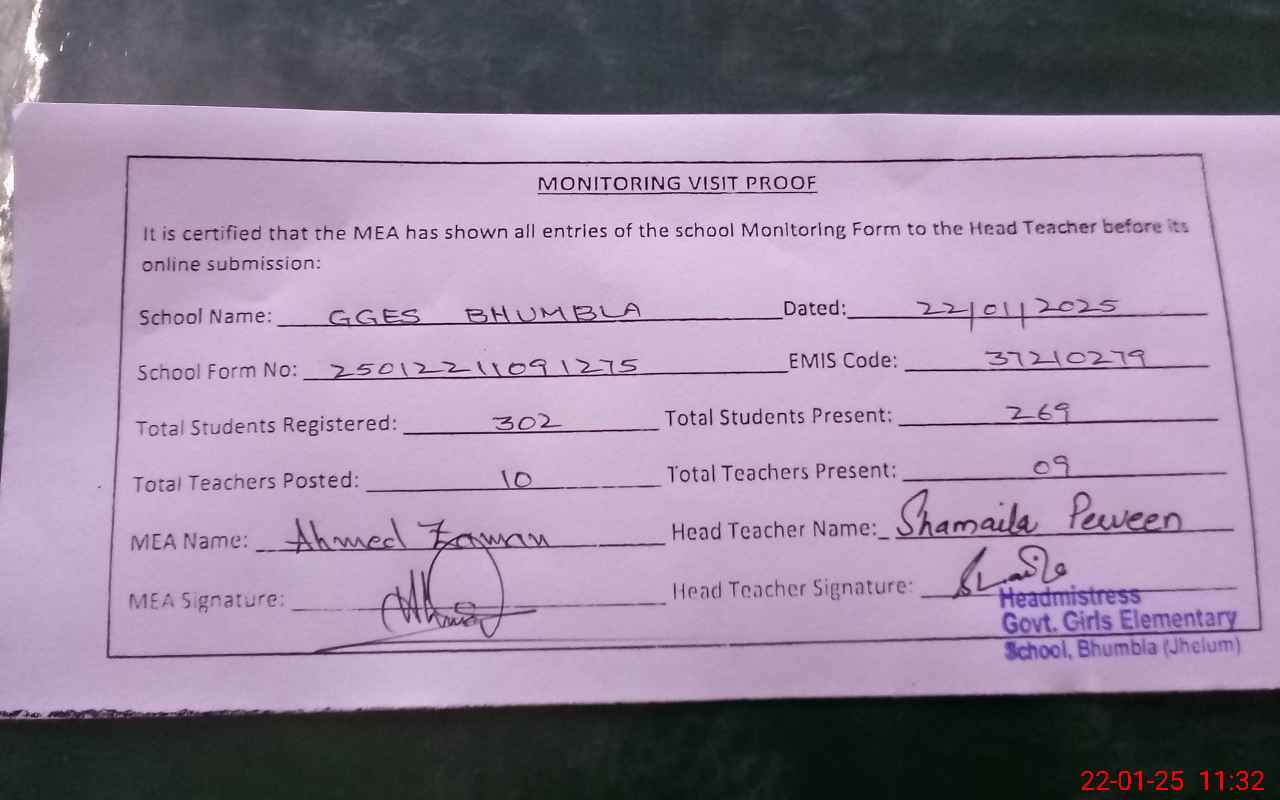 MONITORING VISIT PROOF
It is certified that the MEA has shown all entries of the school Monitoring Form to the Head Teacher before its
online submission:
School Name: GGES BHUMBLA Dated: 22/01/2025
School Form No: 250122211091275 EMIS Code: 37210279
Total Students Registered: 302 Total Students Present: 269
Total Teachers Posted: 10 Total Teachers Present: 09
MEA Name: Ahmed Zaman Head Teacher Name: Shamaila Perveen
MEA Signature: Head Teacher Signature:
Headmistress
Govt. Girls Elementary
School, Bhumbla (Jhelum)
22-01-25 11:32